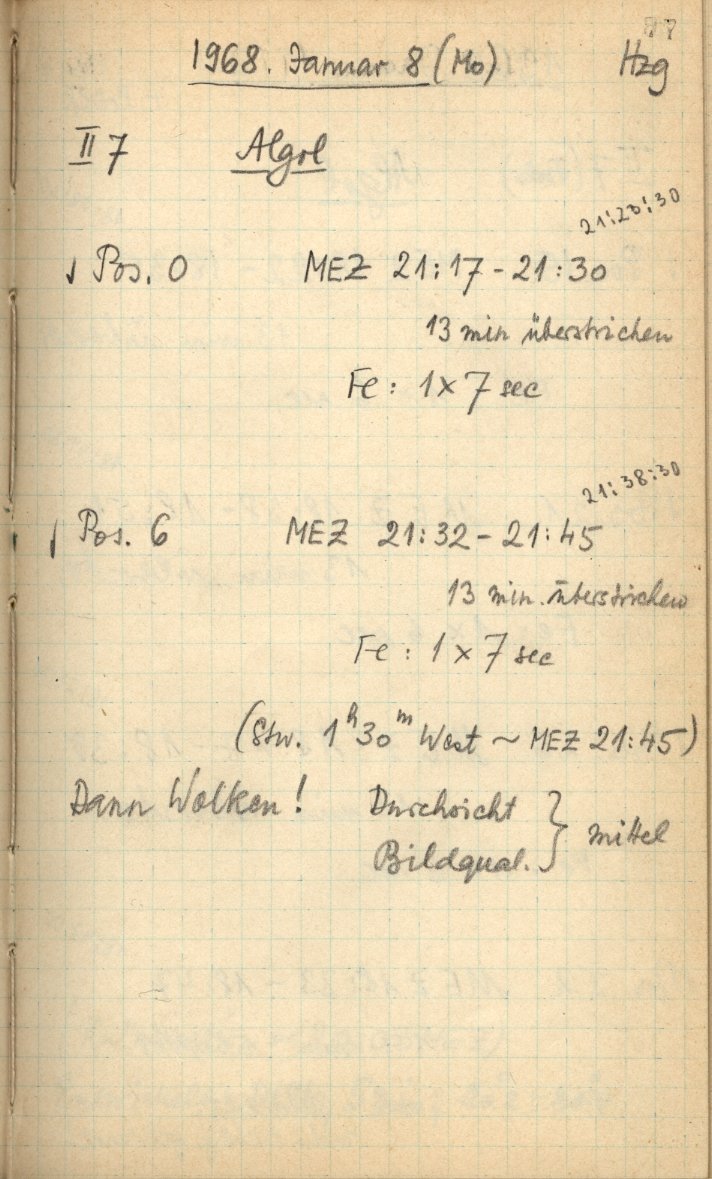 87
1968. Januar 8 (Mo) Hzg
II 7 Algol
21:23:30
Pos. 0 MEZ 21:17 - 21:30
13 min überstrichen
Fe: 1 x 7 sec
21:38:30
Pos. 6 MEZ 21:32 - 21:45
13 min. überstrichen
Fe: 1 x 7 sec
(Stw. 1h 30m West ~ MEZ 21:45)
Dann Wolken! Durchsicht
Bildqual. } mittel